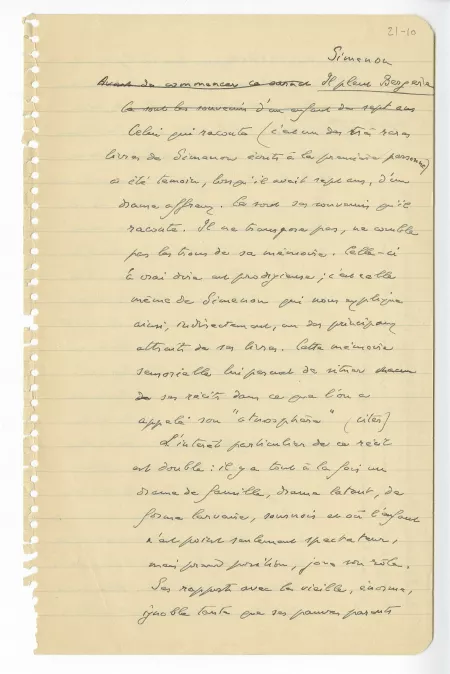 21-10
Simenon
Avant de commencer ce carnet Il pleut Bergère
Ce sont les souvenirs d'un enfant de sept ans
Celui qui raconte (c'est un des très rares
livres de Simenon écrits à la première personne)
a été témoin, lorsqu'il avait sept ans, d'un
drame affreux. Ce sont ses souvenirs qu'il
raconte. Il ne transpose pas, ne comble
pas les trous de sa mémoire. Celle-ci
à vrai dire est prodigieuse ; c'est celle
même de Simenon qui nous explique
ainsi, indirectement, un des principaux
attraits de ses livres. Cette mémoire
sensorielle lui permet de situer
de ses récits dans ce que l'on a
appelé son "atmosphère" (citer)
L'intérêt particulier de ce récit
est double : il y a tout à la fois un
drame de famille, drame latent, de
forme larvaire, sournois et où l'enfant
n'est point seulement spectateur,
mais prend position, joue son rôle.
Ses rapports avec la vieille, énorme,
ignoble tante que ses pauvres parents